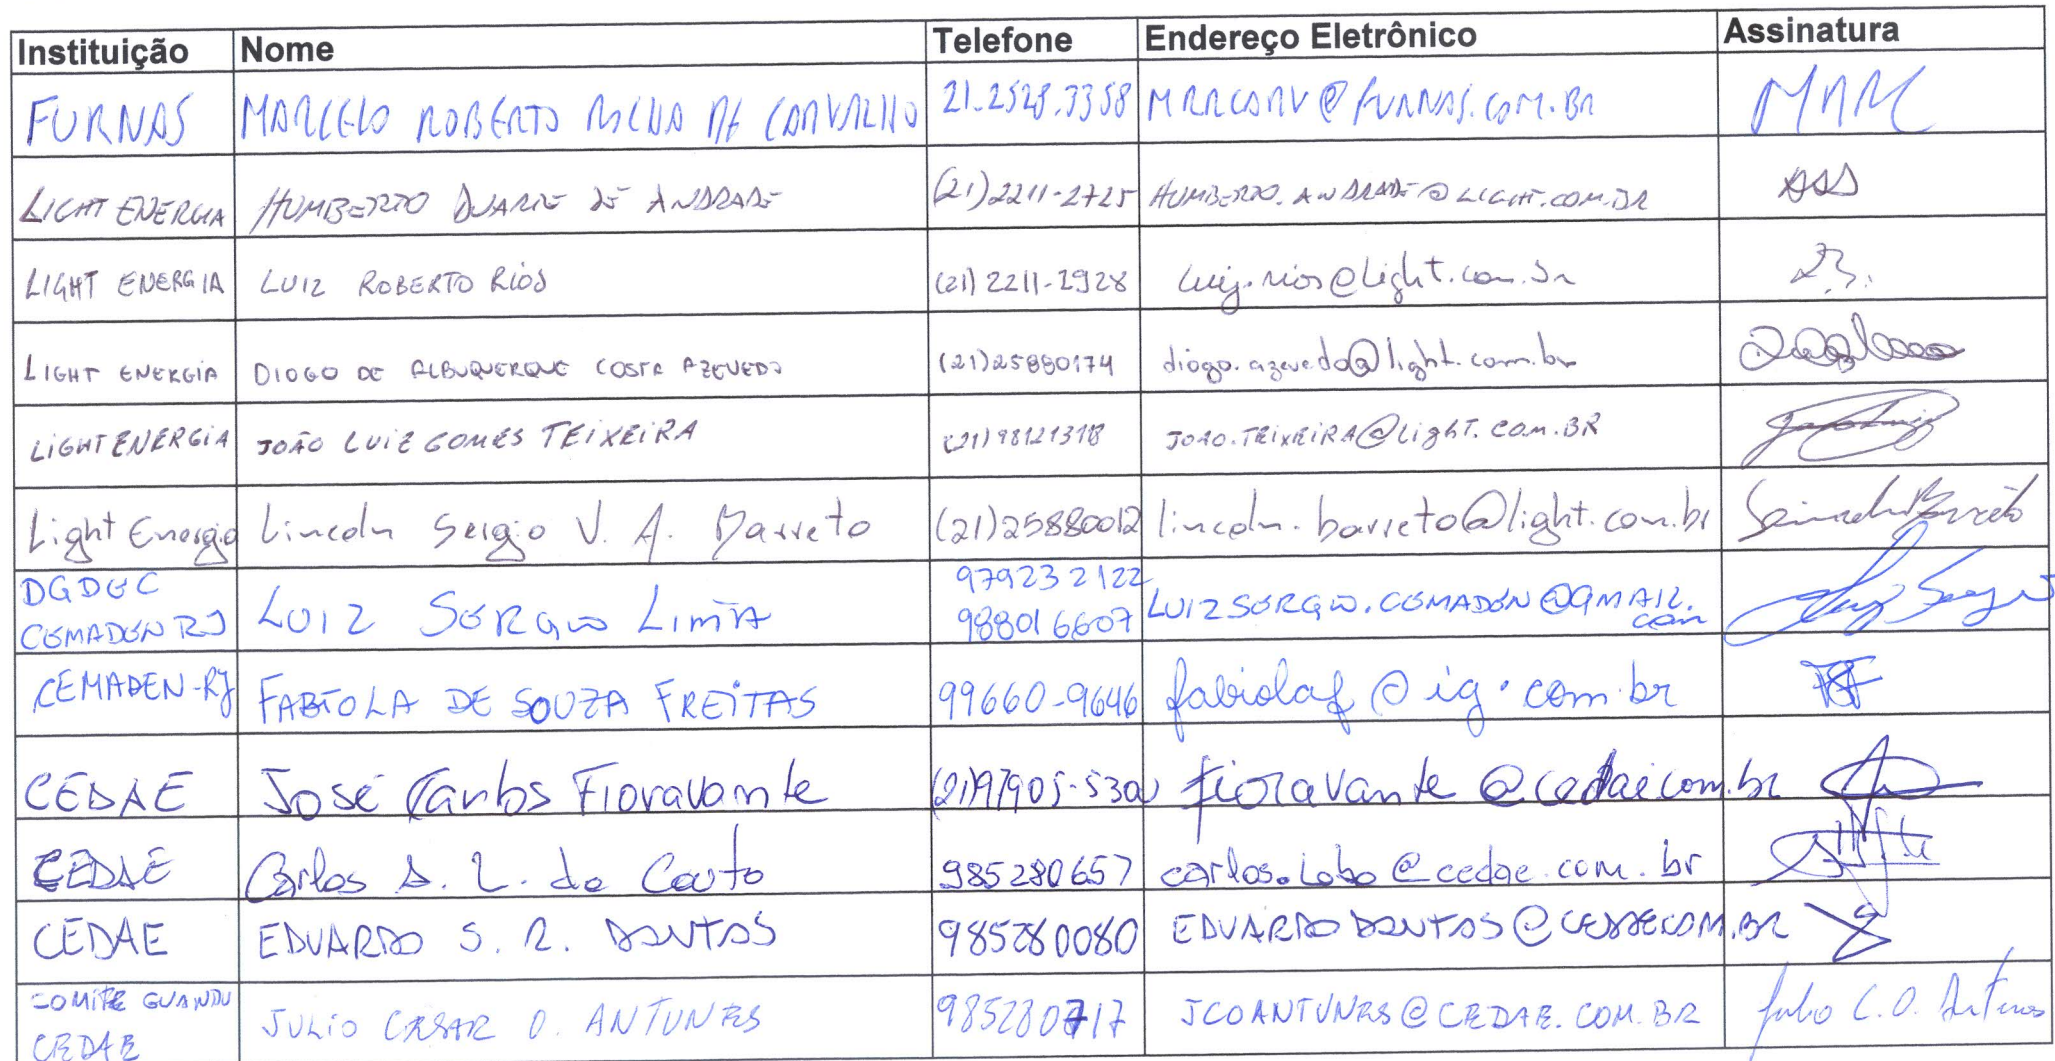 Instituição Nome Telefone Endereço Eletrônico Assinatura
FURNAS MARCELO ROBERTO ROCHA DE CARVALHO 21.2528.3358 MRRCARV@FURNAS.COM.BR
LIGHT ENERGIA HUMBERTO DUARTE DE ANDRADE (21)2211-2725 HUMBERTO.ANDRADE@LIGHT.COM.BR
LIGHT ENERGIA LUIZ ROBERTO RIOS (21) 2211-2928 luiz.rios@light.com.br
LIGHT ENERGIA DIOGO DE ALBUQUERQUE COSTA AZEVEDO (21)25880174 diogo.azevedo@light.com.br
LIGHT ENERGIA JOÃO LUIZ GOMES TEIXEIRA JOAO.TEIXEIRA@LIGHT.COM.BR
Light Energia Lincoln Sergio V. A. Barreto (21)25880012 lincoln.barreto@light.com.br
DGDEC 979232122
CEMADEN RJ LUIZ SERGIO LIMA 988016607 LUIZSERGIO.CEMADEN@GMAIL.
com
CEMADEN-RJ FABIOLA DE SOUZA FREITAS 99660-9646 fabiolaf@ig.com.br
CEDAE José Carlos Fioravante fioravante@cedae.com.br
CEDAE Carlos A. L. do Couto 985280657 carlos.lobo@cedae.com.br
CEDAE EDUARDO S. R. DANTAS 985280080 EDUARDODANTAS@CEDAE.COM.BR
COMITE GUANDU
CEDAE JULIO CESAR O. ANTUNES 985280717 JCOANTUNES@CEDAE.COM.BR Julio C. O. Antunes